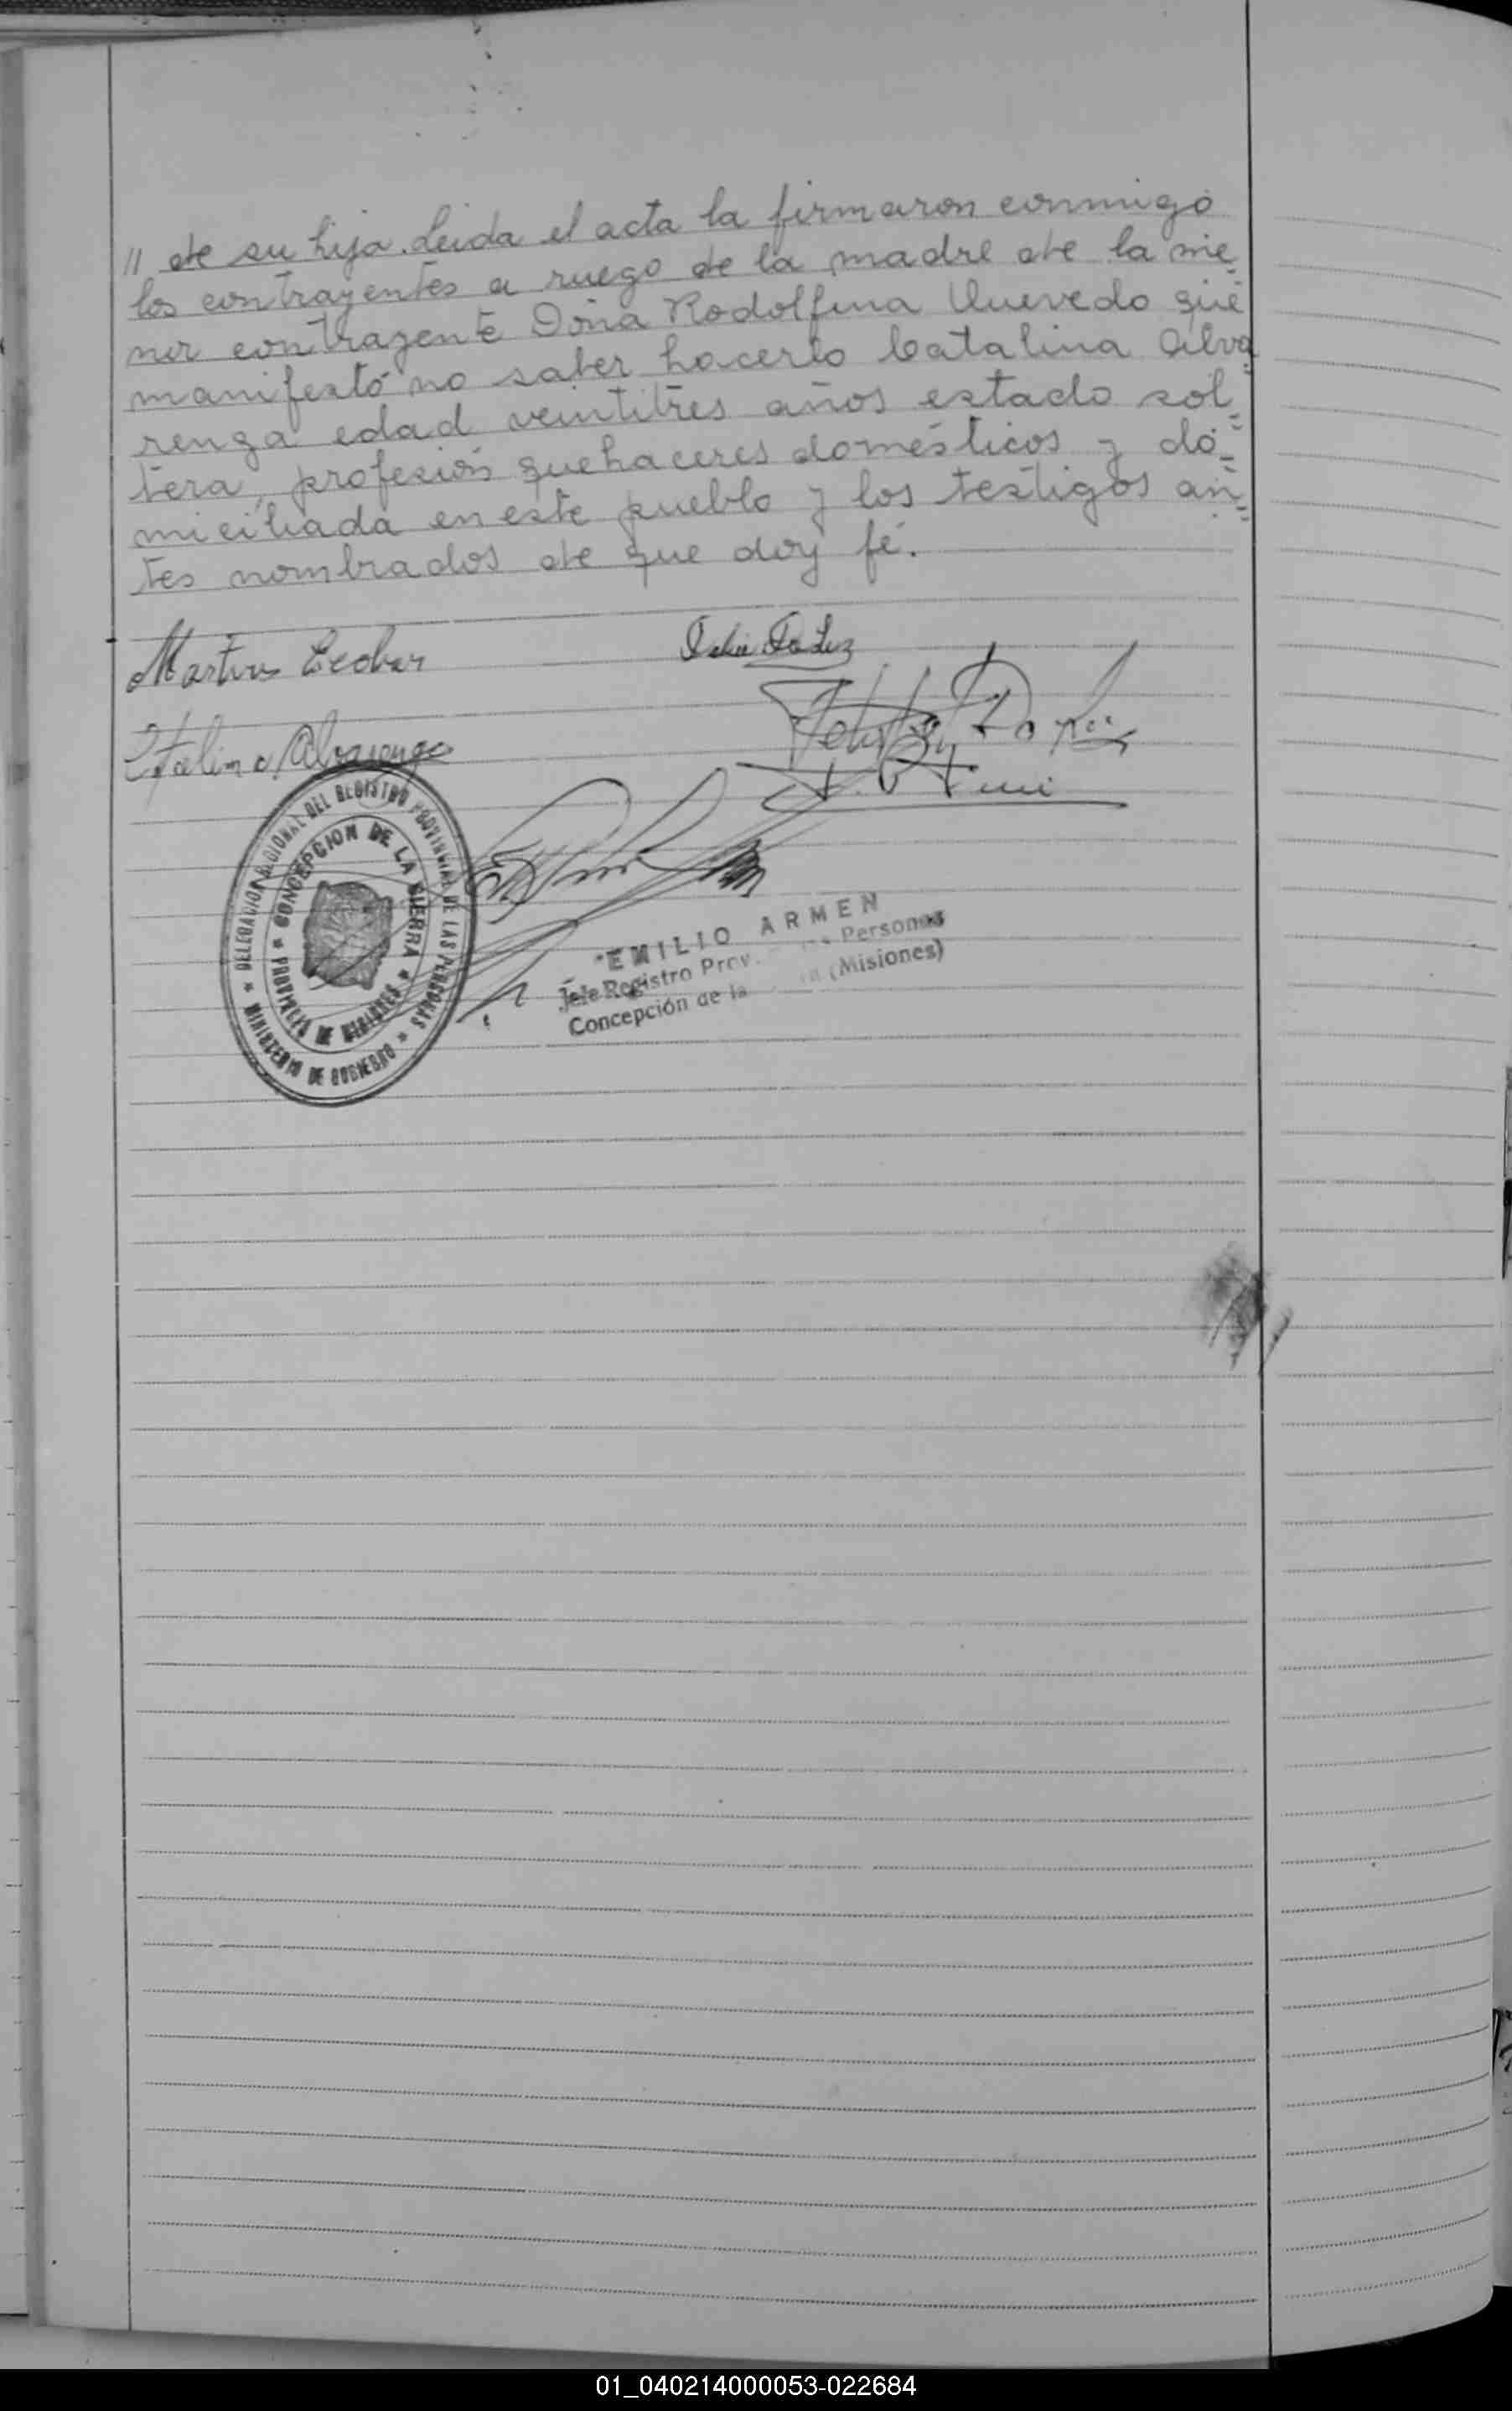 // de su hija. Leida el acta la firmaron conmigo
los contrayentes a ruego de la madre de la me
nor contrayente Doña Rodolfina Quevedo que
manifestó no saber hacerlo Catalina Alva
renga edad veintitres años estado sol
tera, profesión quehaceres domésticos y do
miciliada en este pueblo y los testigos an
tes nombrados de que doy fé.
Martires Escobar
Catalina Alvarenga
DELEGACION REGIONAL DEL REGISTRO PROVINCIAL DE LAS PERSONAS
* MINISTERIO DE GOBIERNO *
* CONCEPCION DE LA SIERRA *
PROVINCIA DE MISIONES
EMILIO ARMEN
Jefe Registro Prov. Personas
Concepción de la (Misiones)
01_040214000053-022684